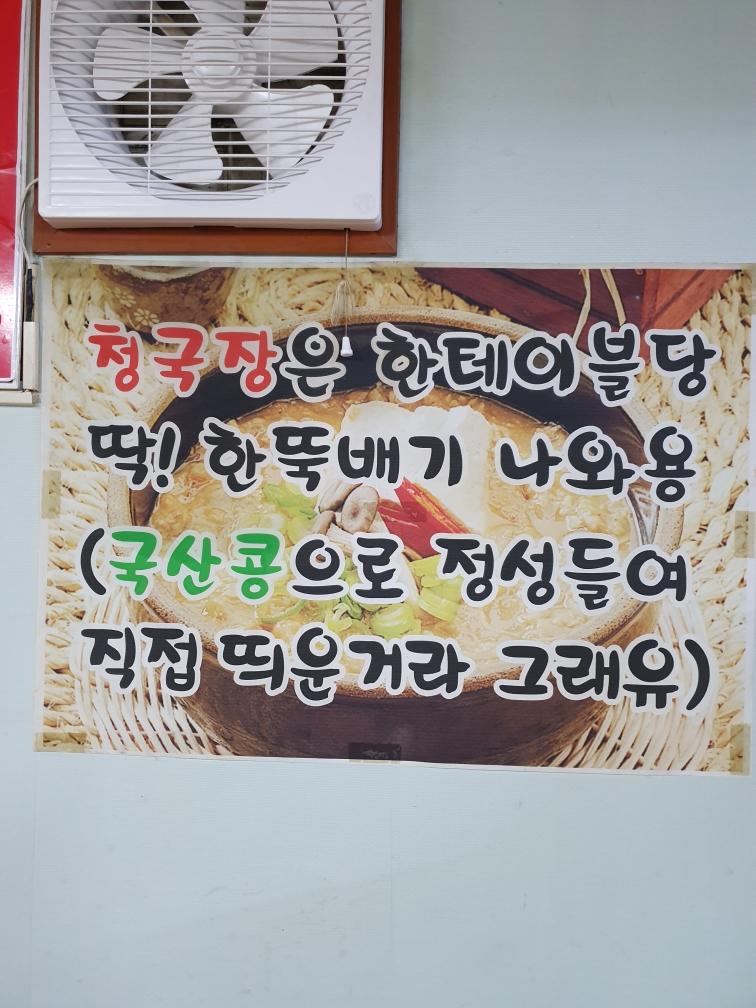 청국장은 한테이블당
딱! 한뚝배기 나와용
(국산콩으로 정성들여
직접 띄운거라 그래유)